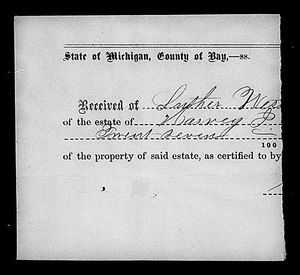 State of Michigan, County of Bay,—ss.
Received of Luther Wes
of the estate of Harvey
Twent seven
100
of the property of said estate, as certified to by